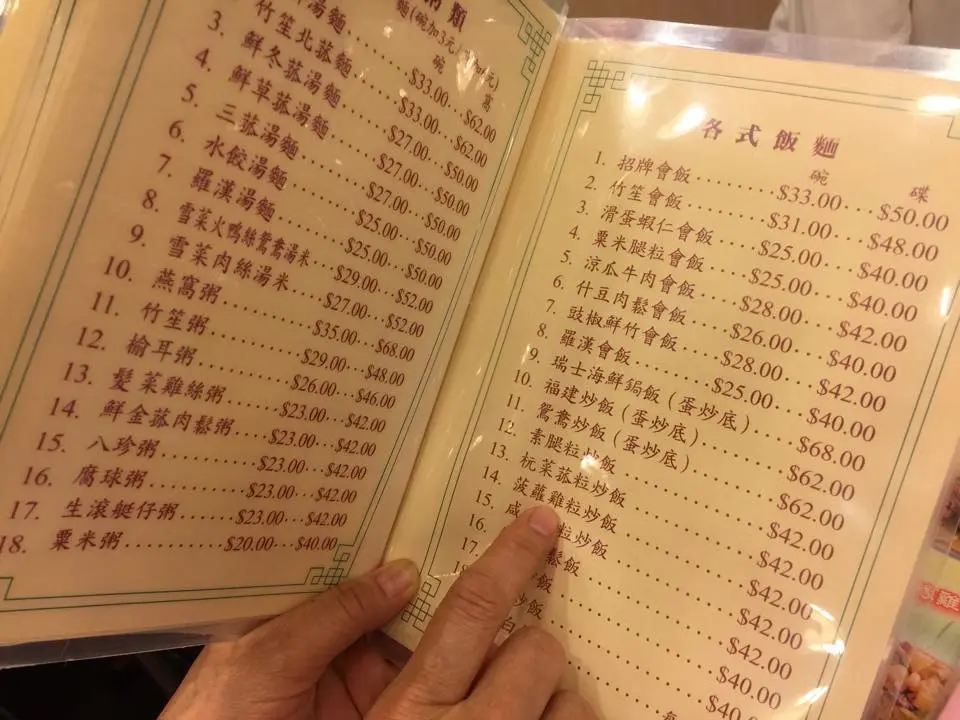 粥 類
碗 窩
湯麵 $33.00 $62.00
竹笙北菰麵 $33.00 $62.00
3. 鮮冬菰湯麵 $27.00 $50.00
4. 鮮草菰湯麵 $27.00 $50.00
5. 三菰湯麵 $27.00 $50.00
6. 水餃湯麵 $25.00 $50.00
7. 羅漢湯麵 $25.00 $50.00
8. 雪菜火鴨絲鴛鴦湯米 $29.00 $52.00
9. 雪菜肉絲湯米 $27.00 $52.00
10. 燕窩粥 $35.00 $68.00
11. 竹笙粥 $29.00 $48.00
12. 榆耳粥 $26.00 $46.00
13. 髮菜雞絲粥 $23.00 $42.00
14. 鮮金菰肉鬆粥 $23.00 $42.00
15. 八珍粥 $23.00 $42.00
16. 腐球粥 $23.00 $42.00
17. 生滾艇仔粥 $23.00 $42.00
18. 粟米粥 $20.00 $40.00
各式飯麵
碗 碟
1. 招牌會飯 $33.00 $50.00
2. 竹笙會飯 $31.00 $48.00
3. 滑蛋蝦仁會飯 $25.00 $40.00
4. 粟米腿粒會飯 $25.00 $40.00
5. 涼瓜牛肉會飯 $28.00 $42.00
6. 什豆肉鬆會飯 $26.00 $40.00
7. 豉椒鮮竹會飯 $28.00 $42.00
8. 羅漢會飯 $25.00 $40.00
9. 瑞士海鮮焗飯 (蛋炒底) $68.00
10. 福建炒飯 (蛋炒底) $62.00
11. 鴛鴦炒飯 (蛋炒底) $62.00
12. 素腿粒炒飯 $42.00
13. 杬菜菰粒炒飯 $42.00
14. 菠蘿雞粒炒飯 $42.00
15. 咸 粒炒飯 $42.00
16. 鬆飯 $42.00
17. 飯 $40.00
18. 炒飯 $40.00